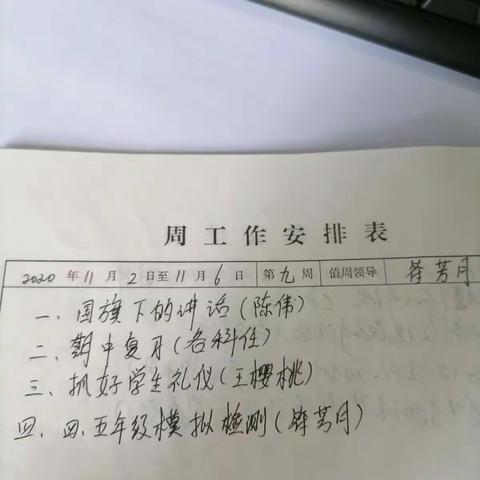 周工作安排表
2020年11月2日至11月6日 第九周 值周领导 符芳月
一、国旗下的讲话(陈伟)
二、期中复习(各科任)
三、抓好学生礼仪(王樱桃)
四、四、五年级模拟检测(符芳月)